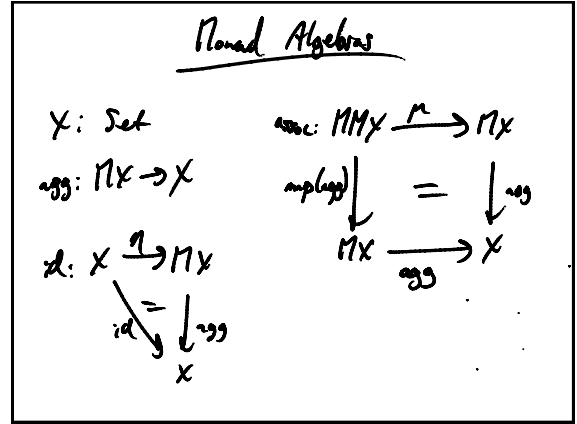 Monad Algebras
X: Set
agg: MX → X
id: X η→ MX
= 
id agg
X
assoc: MMX μ→ MX
map(agg) = agg
MX → X
agg